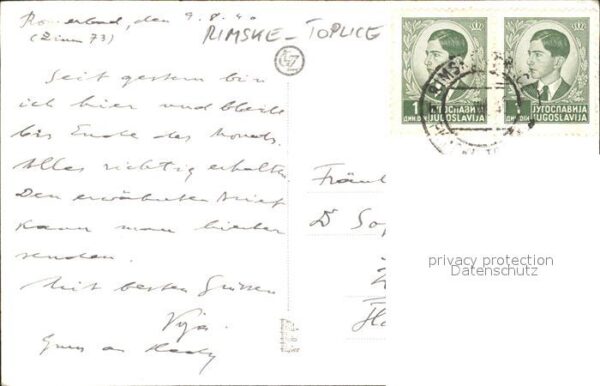 Römerbad, den 9.8.40
(Zimm 73)
RIMSKE-TOPLICE
Seit gestern bin
ich hier und bleibe
bis Ende des Monats.
Alles richtig erhalten
Den erwähnten Brief
kann man hierher
senden.
Mit besten Grüssen
Gruss an
ЈУГОСЛАВИЈА
JUGOSLAVIJA
ЈУГОСЛАВИЈА
JUGOSLAVIJA
RIMSKE
Fräul
D Sop
privacy protection
Datenschutz